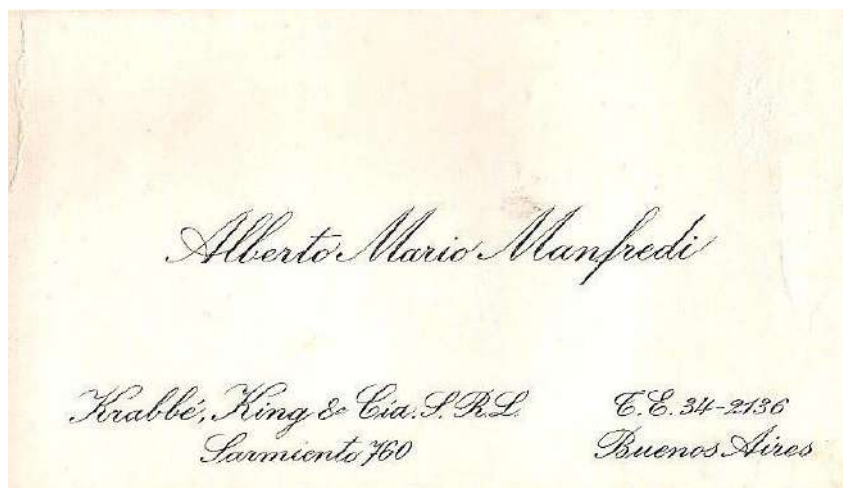 Alberto Mario Manfredi
Krabbé, King & Cía. S. R. L.
Sarmiento 760
T. E. 34-2136
Buenos Aires